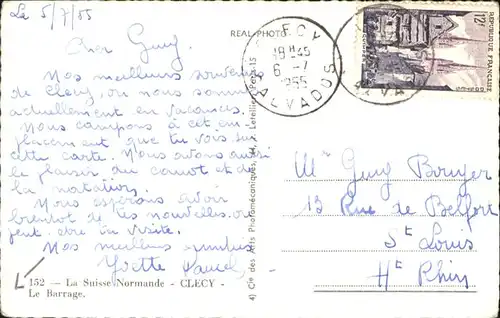 Le 5/7/55
Cher Guy.
Nos meilleurs souvenirs
de Clecy, ou nous sommes
actuellement en vacances.
Nous campons à cet em-
placement que tu vois sur
cette carte. Nous avons aussi
le plaisir du canot et de
la natation.
Nous espérons avoir
bientot de tes nouvelles. ou
peut. etre ta visite.
Nos meilleurs amities
Yvette
152 — La Suisse Normande - CLECY -
Le Barrage.
REAL PHOTO
4) Cie des Arts Photomécaniques, 44, r. Letellier, Paris-15
CLECY
18H45
6 -7
1955
CALVADOS
12F
REPUBLIQUE FRANCAISE
Mr Guy Bruyer
13 Rue de Belfort
St Louis
Ht Rhin